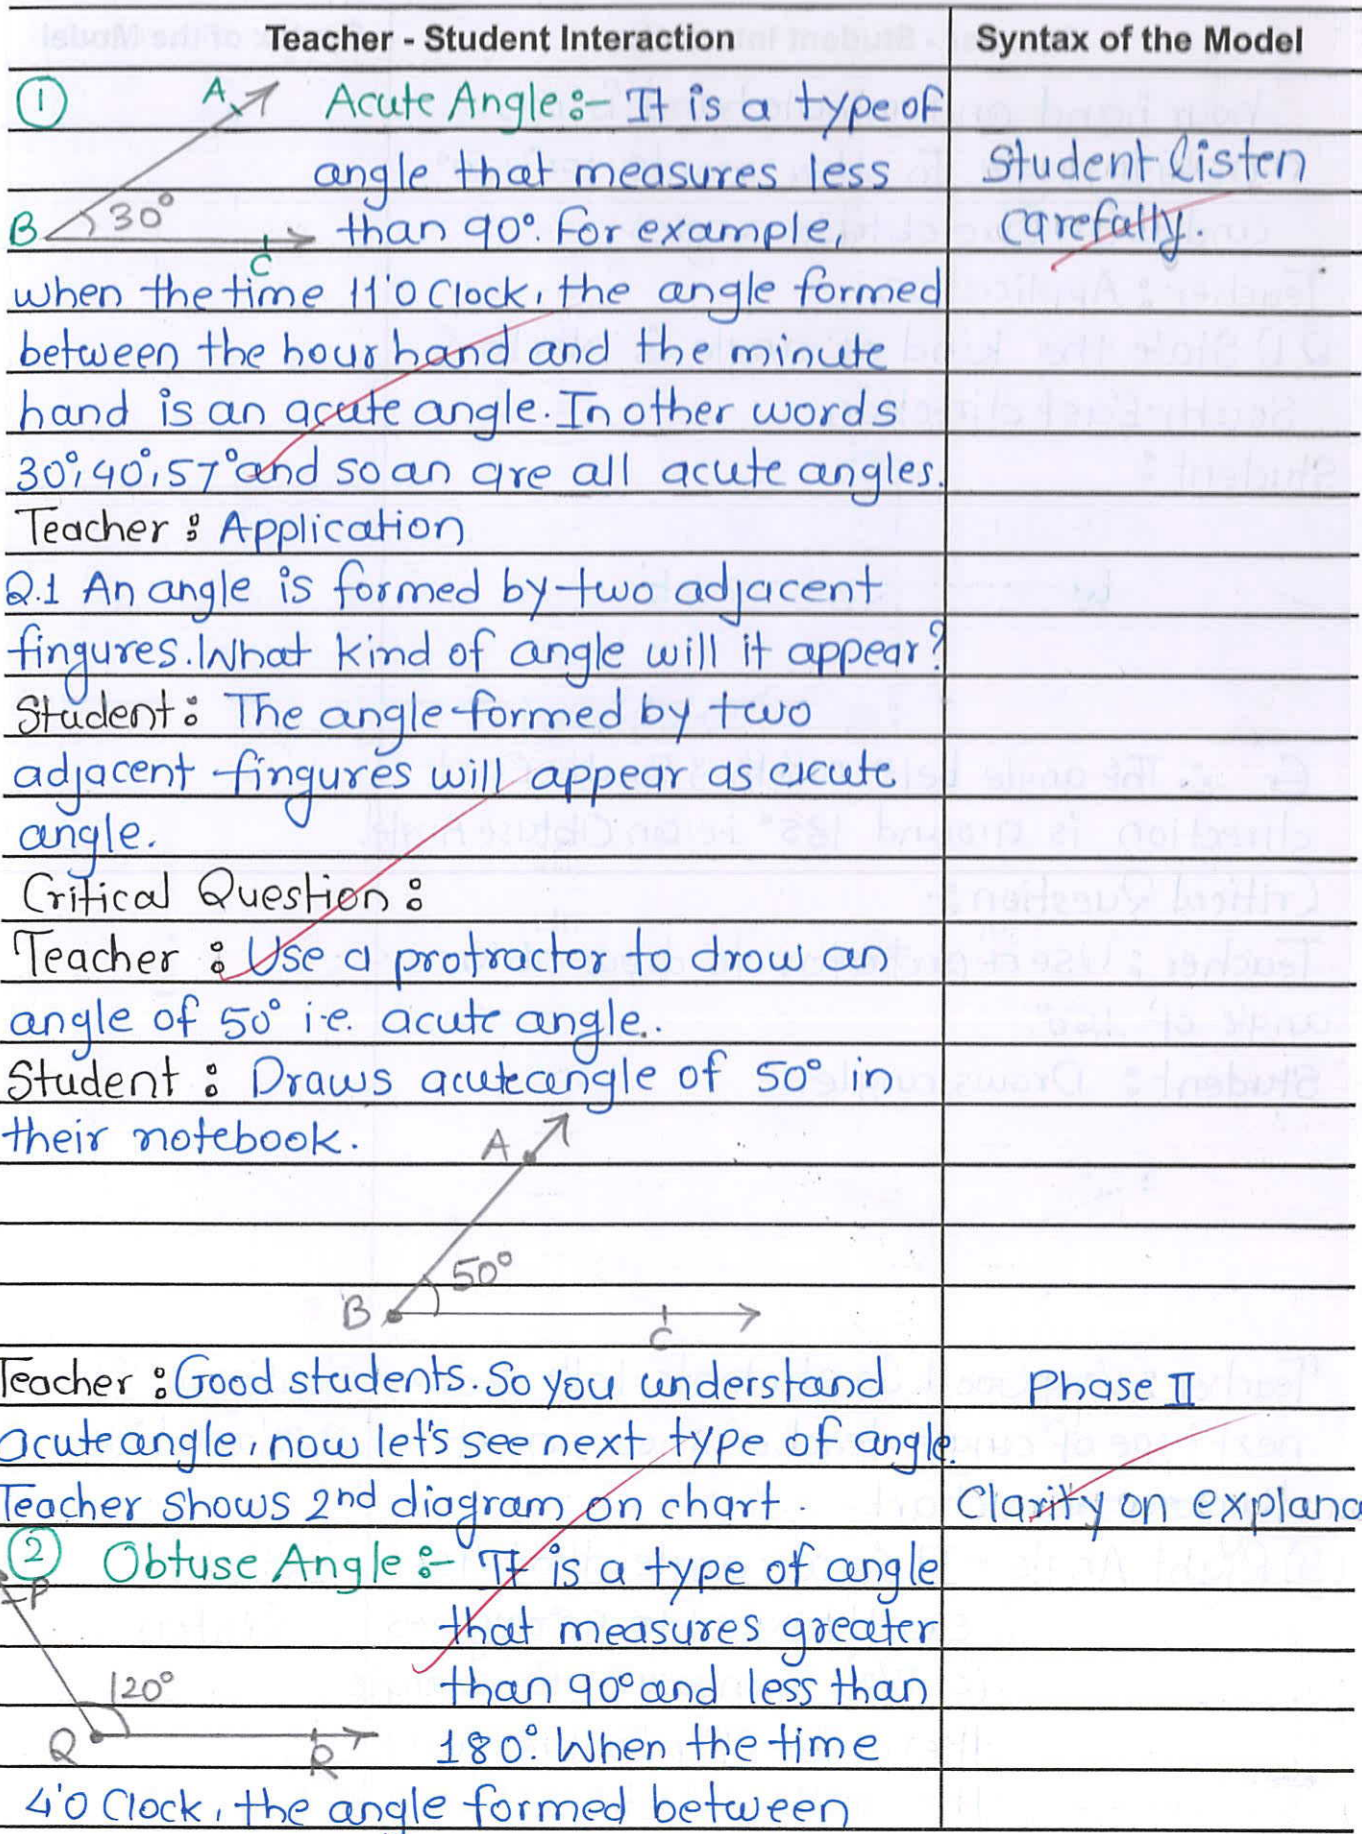 Teacher - Student Interaction
Syntax of the Model
① A Acute Angle :- It is a type of
angle that measures less
Student listen
B 30° than 90°. For example,
carefully.
C
when the time 11'O Clock, the angle formed
between the hour hand and the minute
hand is an acute angle. In other words
30°, 40°, 57° and so an are all acute angles.
Teacher : Application
Q.1 An angle is formed by two adjacent
fingures. What kind of angle will it appear?
Student : The angle formed by two
adjacent fingures will appear as acute
angle.
Critical Question :
Teacher : Use a protractor to draw an
angle of 50° i.e. acute angle.
Student : Draws acute angle of 50° in
their notebook.
A
50°
B
C
Teacher : Good students. So you understand
Phase II
acute angle, now let's see next type of angle.
Teacher shows 2nd diagram on chart.
Clarity on explana
② Obtuse Angle :- It is a type of angle
P
that measures greater
120° than 90° and less than
Q R 180°. When the time
4'O Clock, the angle formed between